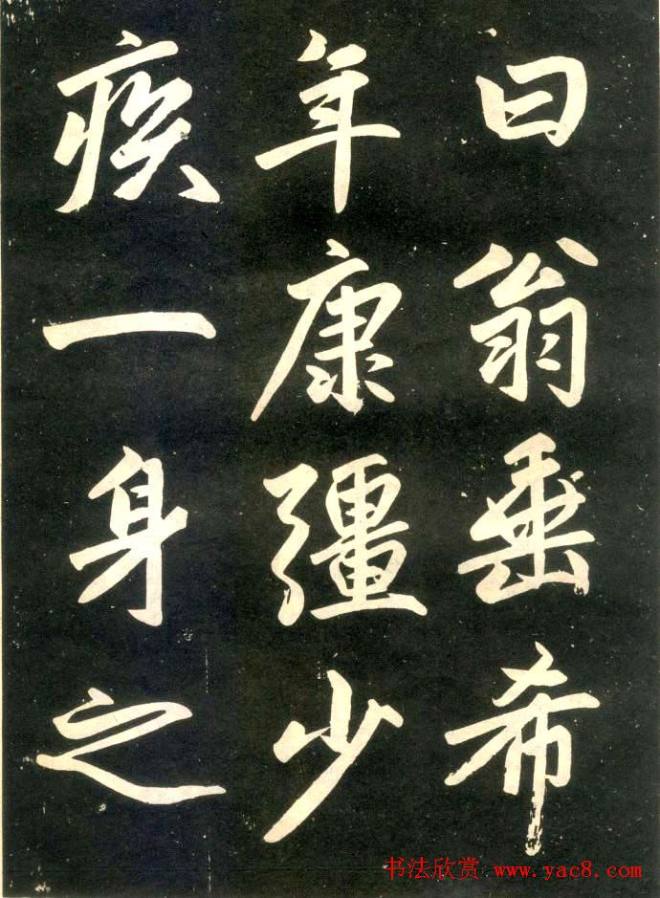 曰翁垂希
年康彊少
疾一身之
书法欣赏 www.yac8.com